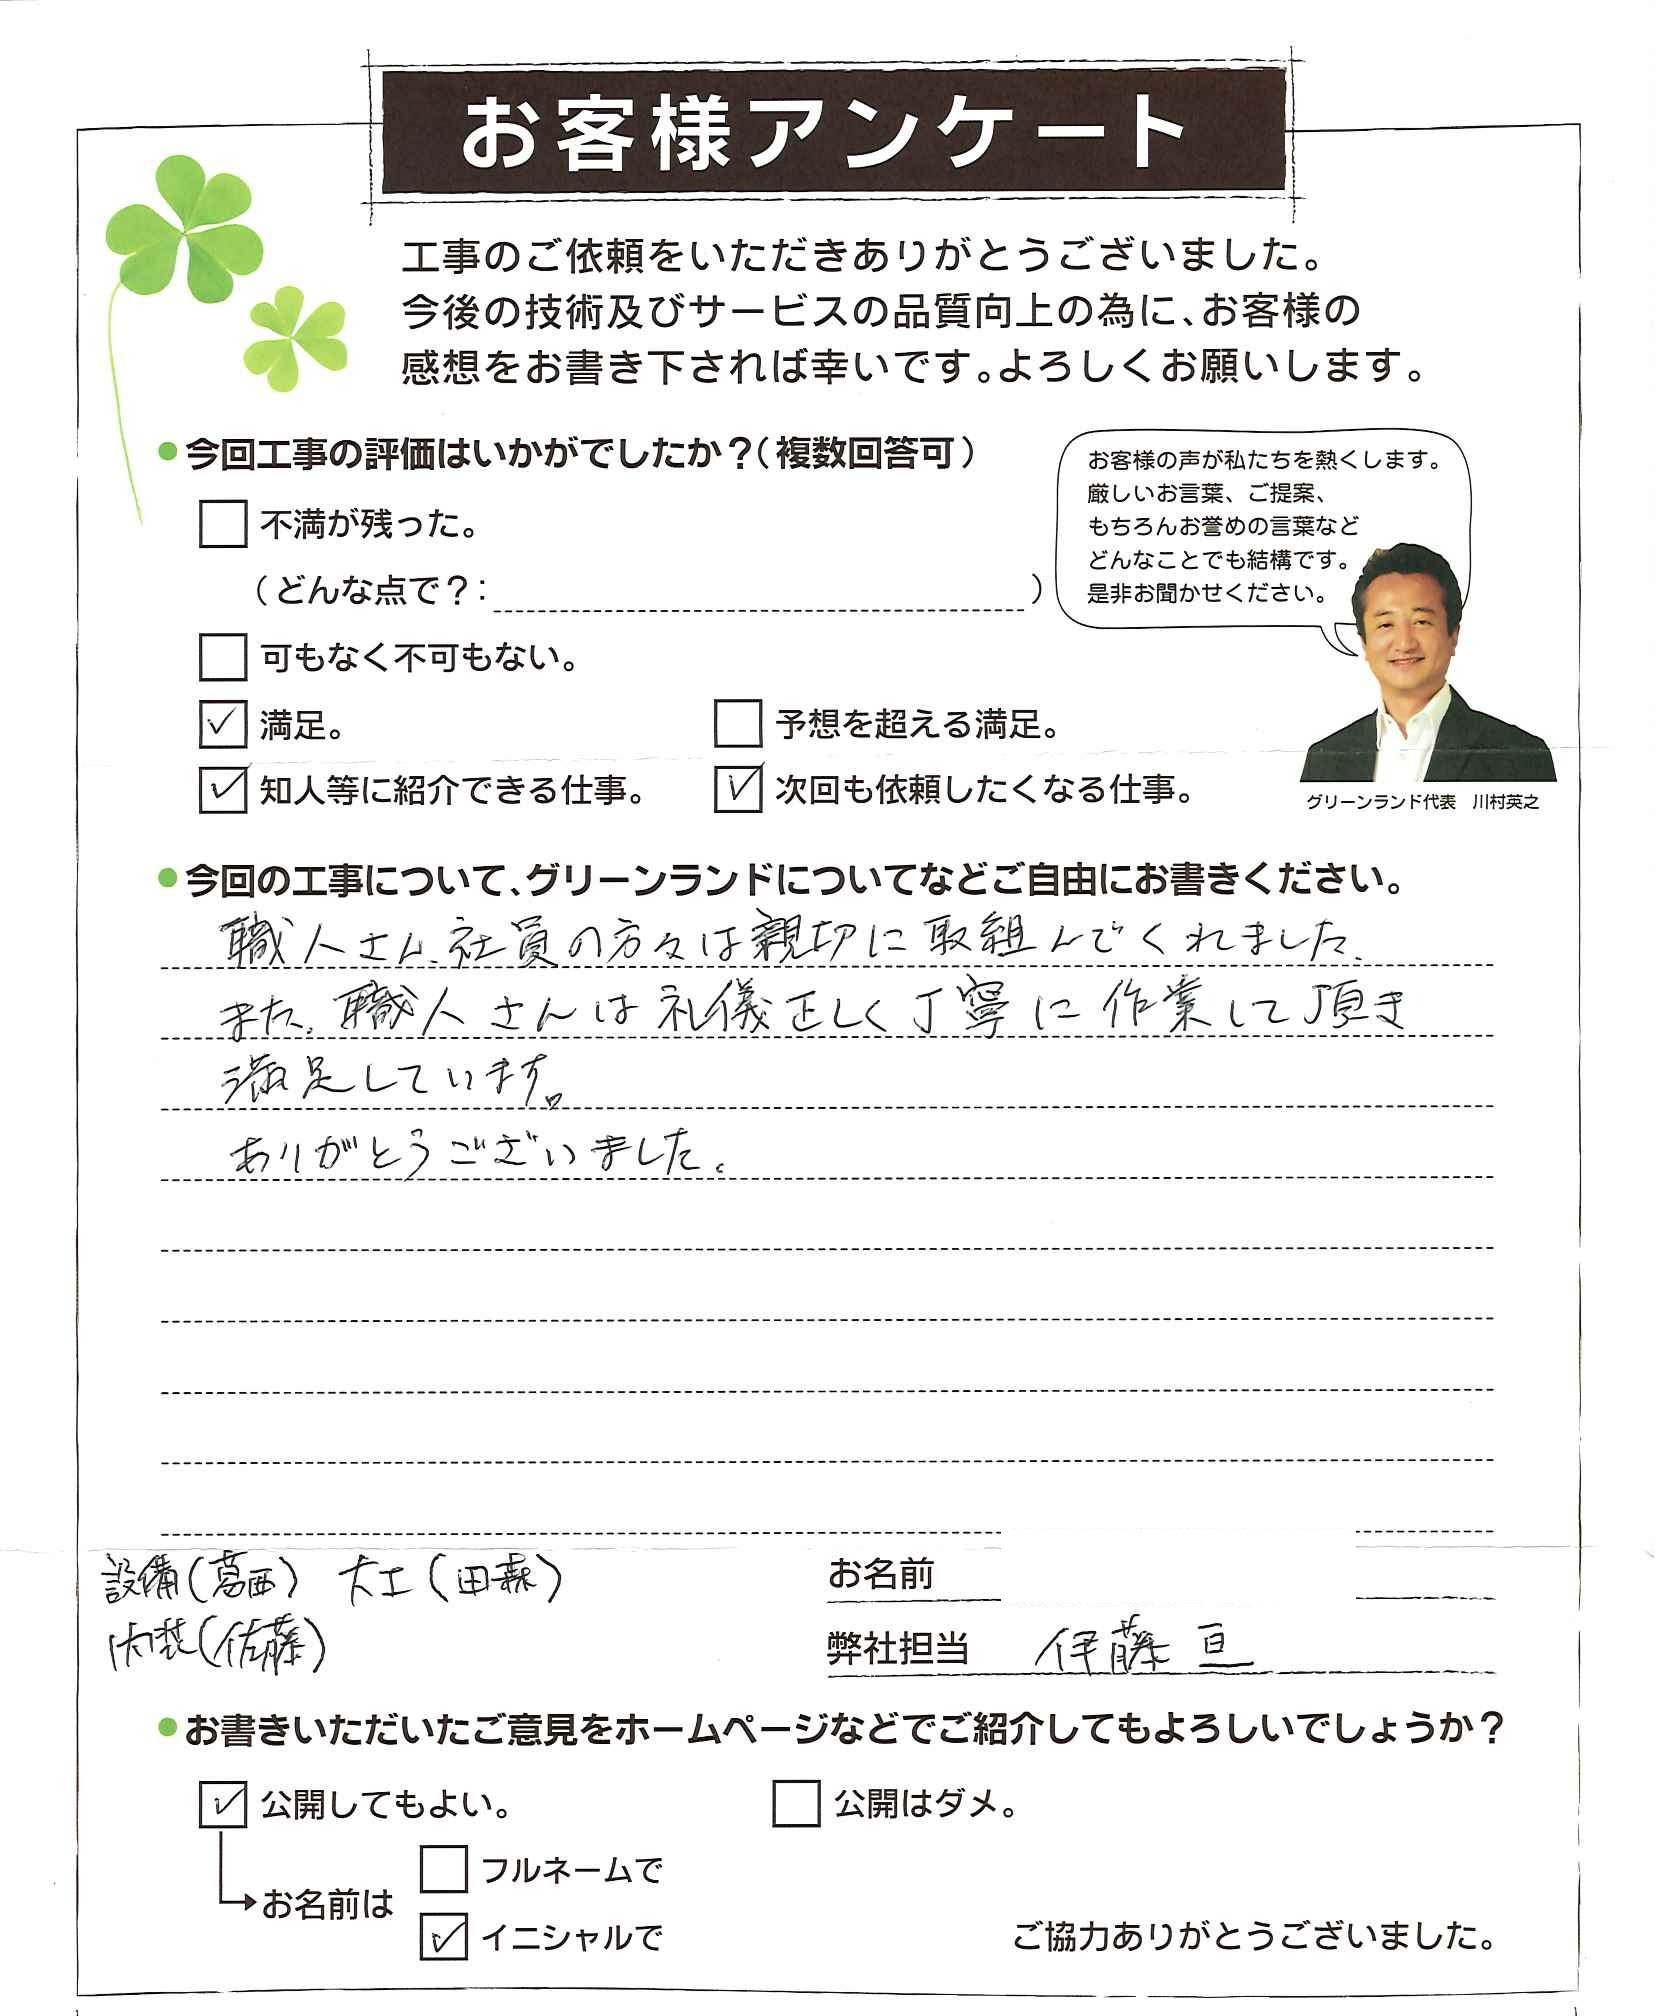 お客様アンケート
工事のご依頼をいただきありがとうございました。
今後の技術及びサービスの品質向上の為に、お客様の
感想をお書き下されば幸いです。よろしくお願いします。
●今回工事の評価はいかがでしたか？（複数回答可）
不満が残った。
（どんな点で？：　）
可もなく不可もない。
満足。
予想を超える満足。
知人等に紹介できる仕事。
次回も依頼したくなる仕事。
お客様の声が私たちを熱くします。
厳しいお言葉、ご提案、
もちろんお誉めの言葉など
どんなことでも結構です。
是非お聞かせください。
グリーンランド代表　川村英之
●今回の工事について、グリーンランドについてなどご自由にお書きください。
職人さん、社員の方々は親切に取組んでくれました。
また、職人さんは礼儀正しく丁寧に作業して頂き
満足しています。
ありがとうございました。
設備（葛西）　大工（田森）
内装（佐藤）
お名前
弊社担当　伊藤 亘
●お書きいただいたご意見をホームページなどでご紹介してもよろしいでしょうか？
公開してもよい。
公開はダメ。
お名前は
フルネームで
イニシャルで
ご協力ありがとうございました。